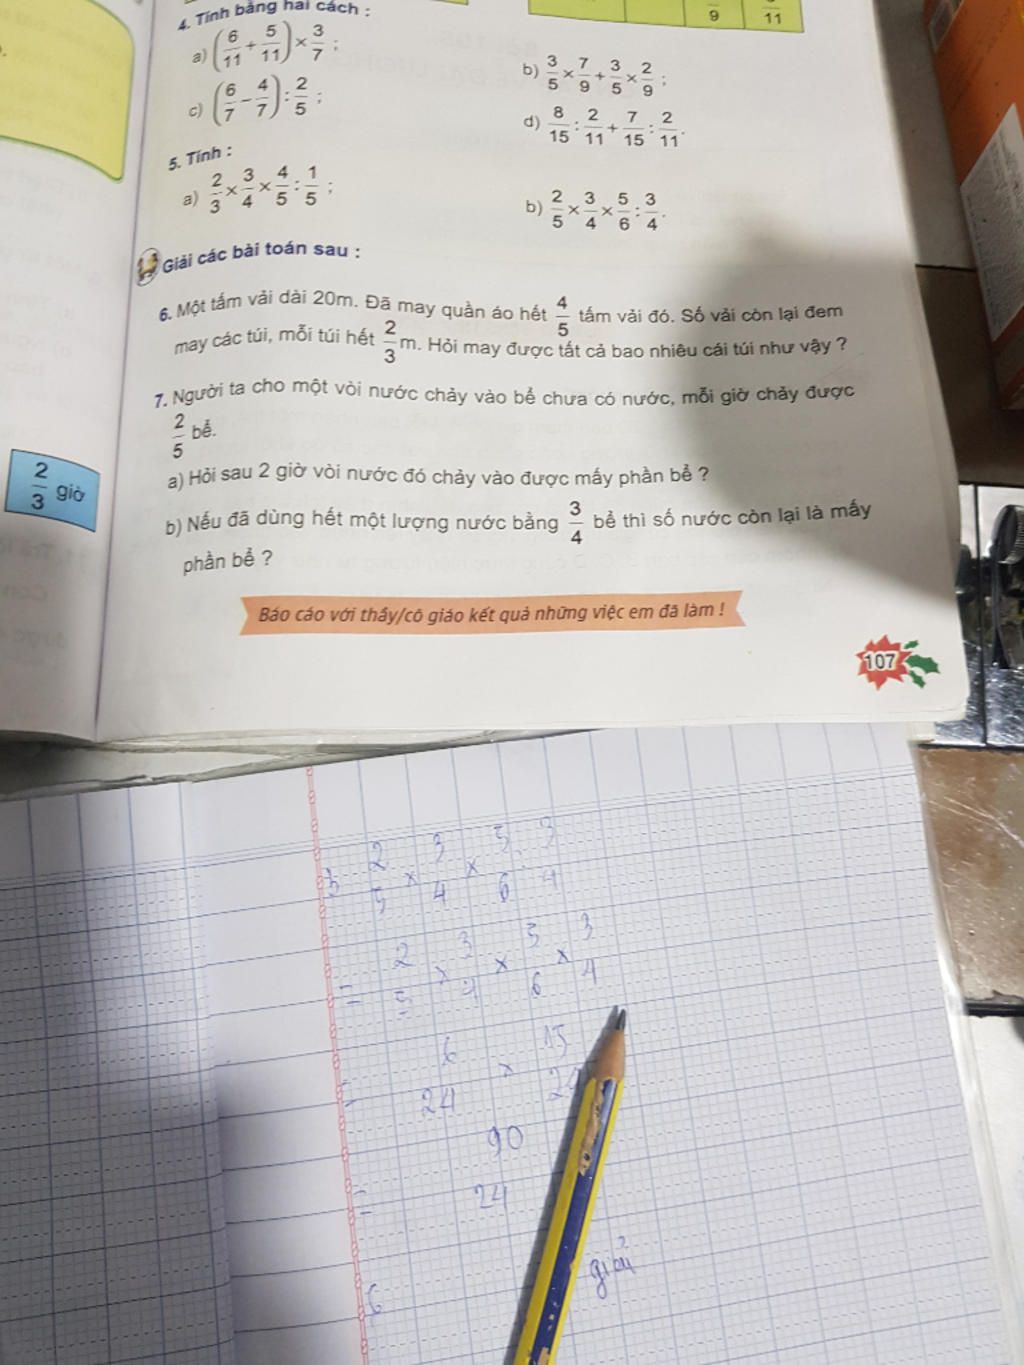 9 11
4. Tính bằng hai cách :
a) (6/11 + 5/11) × 3/7 ;
b) 3/5 × 7/9 + 3/5 × 2/9 ;
c) (6/7 − 4/7) : 2/5 ;
d) 8/15 : 2/11 + 7/15 : 2/11.
5. Tính :
a) 2/3 × 3/4 × 4/5 : 1/5 ;
b) 2/5 × 3/4 × 5/6 : 3/4.
Giải các bài toán sau :
6. Một tấm vải dài 20m. Đã may quần áo hết 4/5 tấm vải đó. Số vải còn lại đem
may các túi, mỗi túi hết 2/3 m. Hỏi may được tất cả bao nhiêu cái túi như vậy ?
7. Người ta cho một vòi nước chảy vào bể chưa có nước, mỗi giờ chảy được
2/5 bể.
a) Hỏi sau 2 giờ vòi nước đó chảy vào được mấy phần bể ?
b) Nếu đã dùng hết một lượng nước bằng 3/4 bể thì số nước còn lại là mấy
phần bể ?
2/3 giờ
Báo cáo với thầy/cô giáo kết quả những việc em đã làm !
107
2/5 × 3/4 × 5/6 : 3/4
= 2/5 × 3/4 × 5/6 × 3/4
= 6/24 × 15/24
= 90/24
6 giải